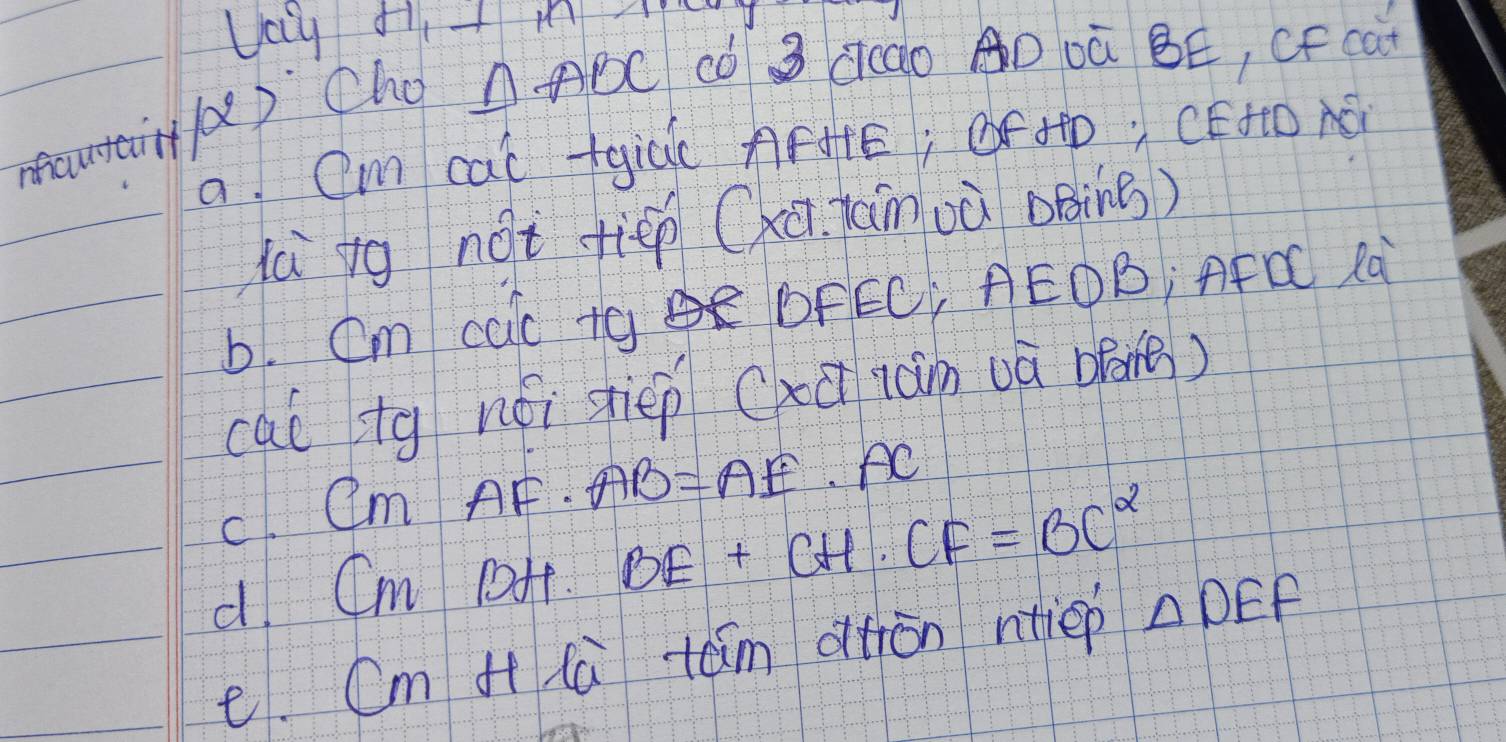 Vậy H, I,
2) Cho Δ ABC có 3 đcao AD và BE, CF cắt
nhau tại H
a. Cm các tgiác AFHE; BFHD; CEHD nội
là tg nội tiếp (xđ. tâm và bkính)
b. Cm các tg BFEC; AEDB; AFDC là
các tg nội tiếp (xđ tâm và bkính)
c. Cm AF. AB = AE. AC
d. Cm BH. BE + CH. CF = BC²
e. Cm H là tâm đtròn ntiếp Δ DEF